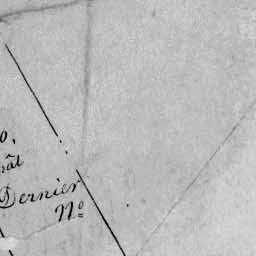 o.
Dernier
No